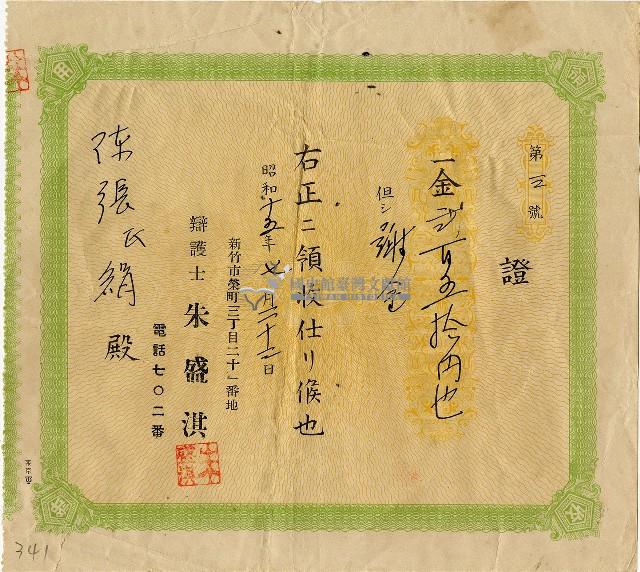 證
第五號
一金弐百五拾円也
但シ謝金
右正ニ領收仕リ候也
昭和十五年七月二十二日
新竹市榮町三丁目二十一番地
辯護士 朱盛淇
電話七〇二番
陳張氏絹殿
國史館臺灣文獻館
TAIWAN HISTORICA
341